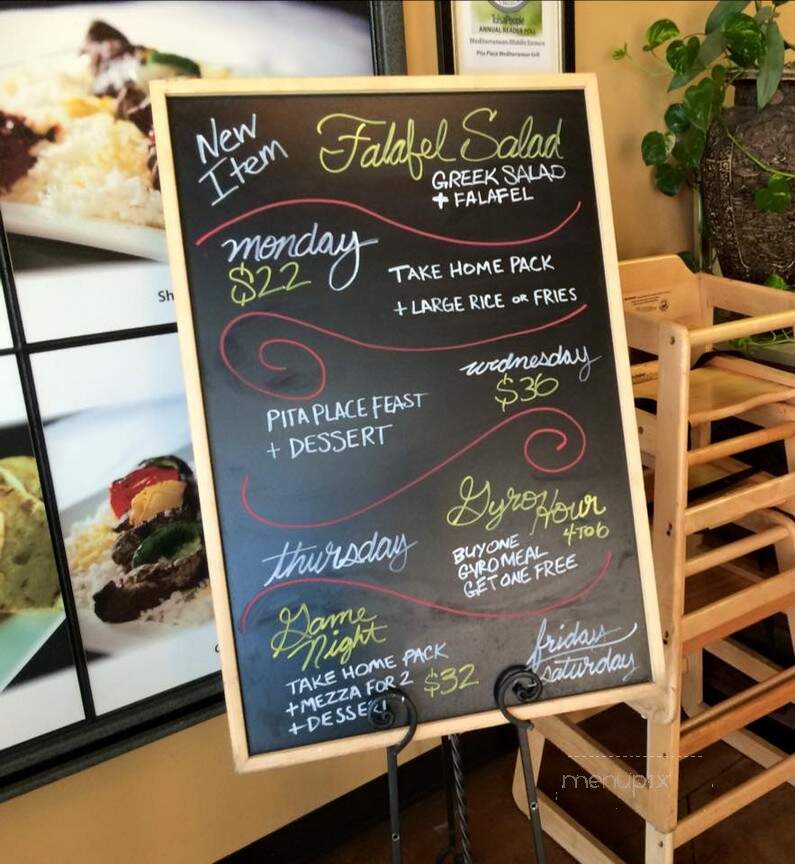 TulsaPeople
ANNUAL READER POLL
Mediterranean/Middle Eastern
Pita Place Mediterranean Grill
New
Item
Falafel Salad
GREEK SALAD
+ FALAFEL
monday
$22
TAKE HOME PACK
+ LARGE RICE OR FRIES
Sh
wednesday
$36
PITA PLACE FEAST
+ DESSERT
Gyro Hour
4 TO 6
thursday
BUY ONE
GYRO MEAL
GET ONE FREE
Game
Night
TAKE HOME PACK
+ MEZZA FOR 2
+ DESSERT
$32
friday
saturday
menupix